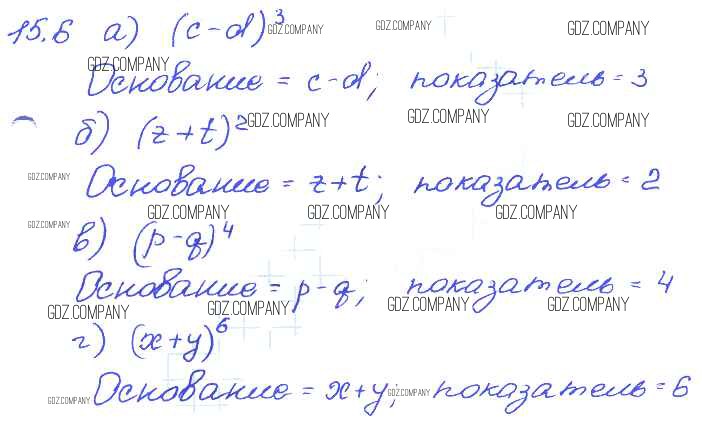 15.6 а) (c-d)³ GDZ.COMPANY GDZ.COMPANY GDZ.COMPANY
GDZ.COMPANY
Основание = c-d; показатель = 3
б) (z+t)² GDZ.COMPANY GDZ.COMPANY GDZ.COMPANY
GDZ.COMPANY Основание = z+t; показатель = 2
GDZ.COMPANY GDZ.COMPANY GDZ.COMPANY
GDZ.COMPANY в) (p-q)⁴
Основание = p-q; показатель = 4
GDZ.COMPANY GDZ.COMPANY GDZ.COMPANY GDZ.COMPANY
г) (x+y)⁶
GDZ.COMPANY Основание = x+y; GDZ.COMPANY показатель = 6